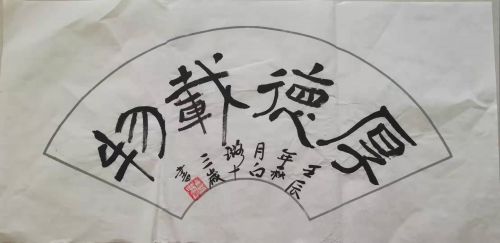 厚德載物
壬辰
年秋
月白
璐十
三歲